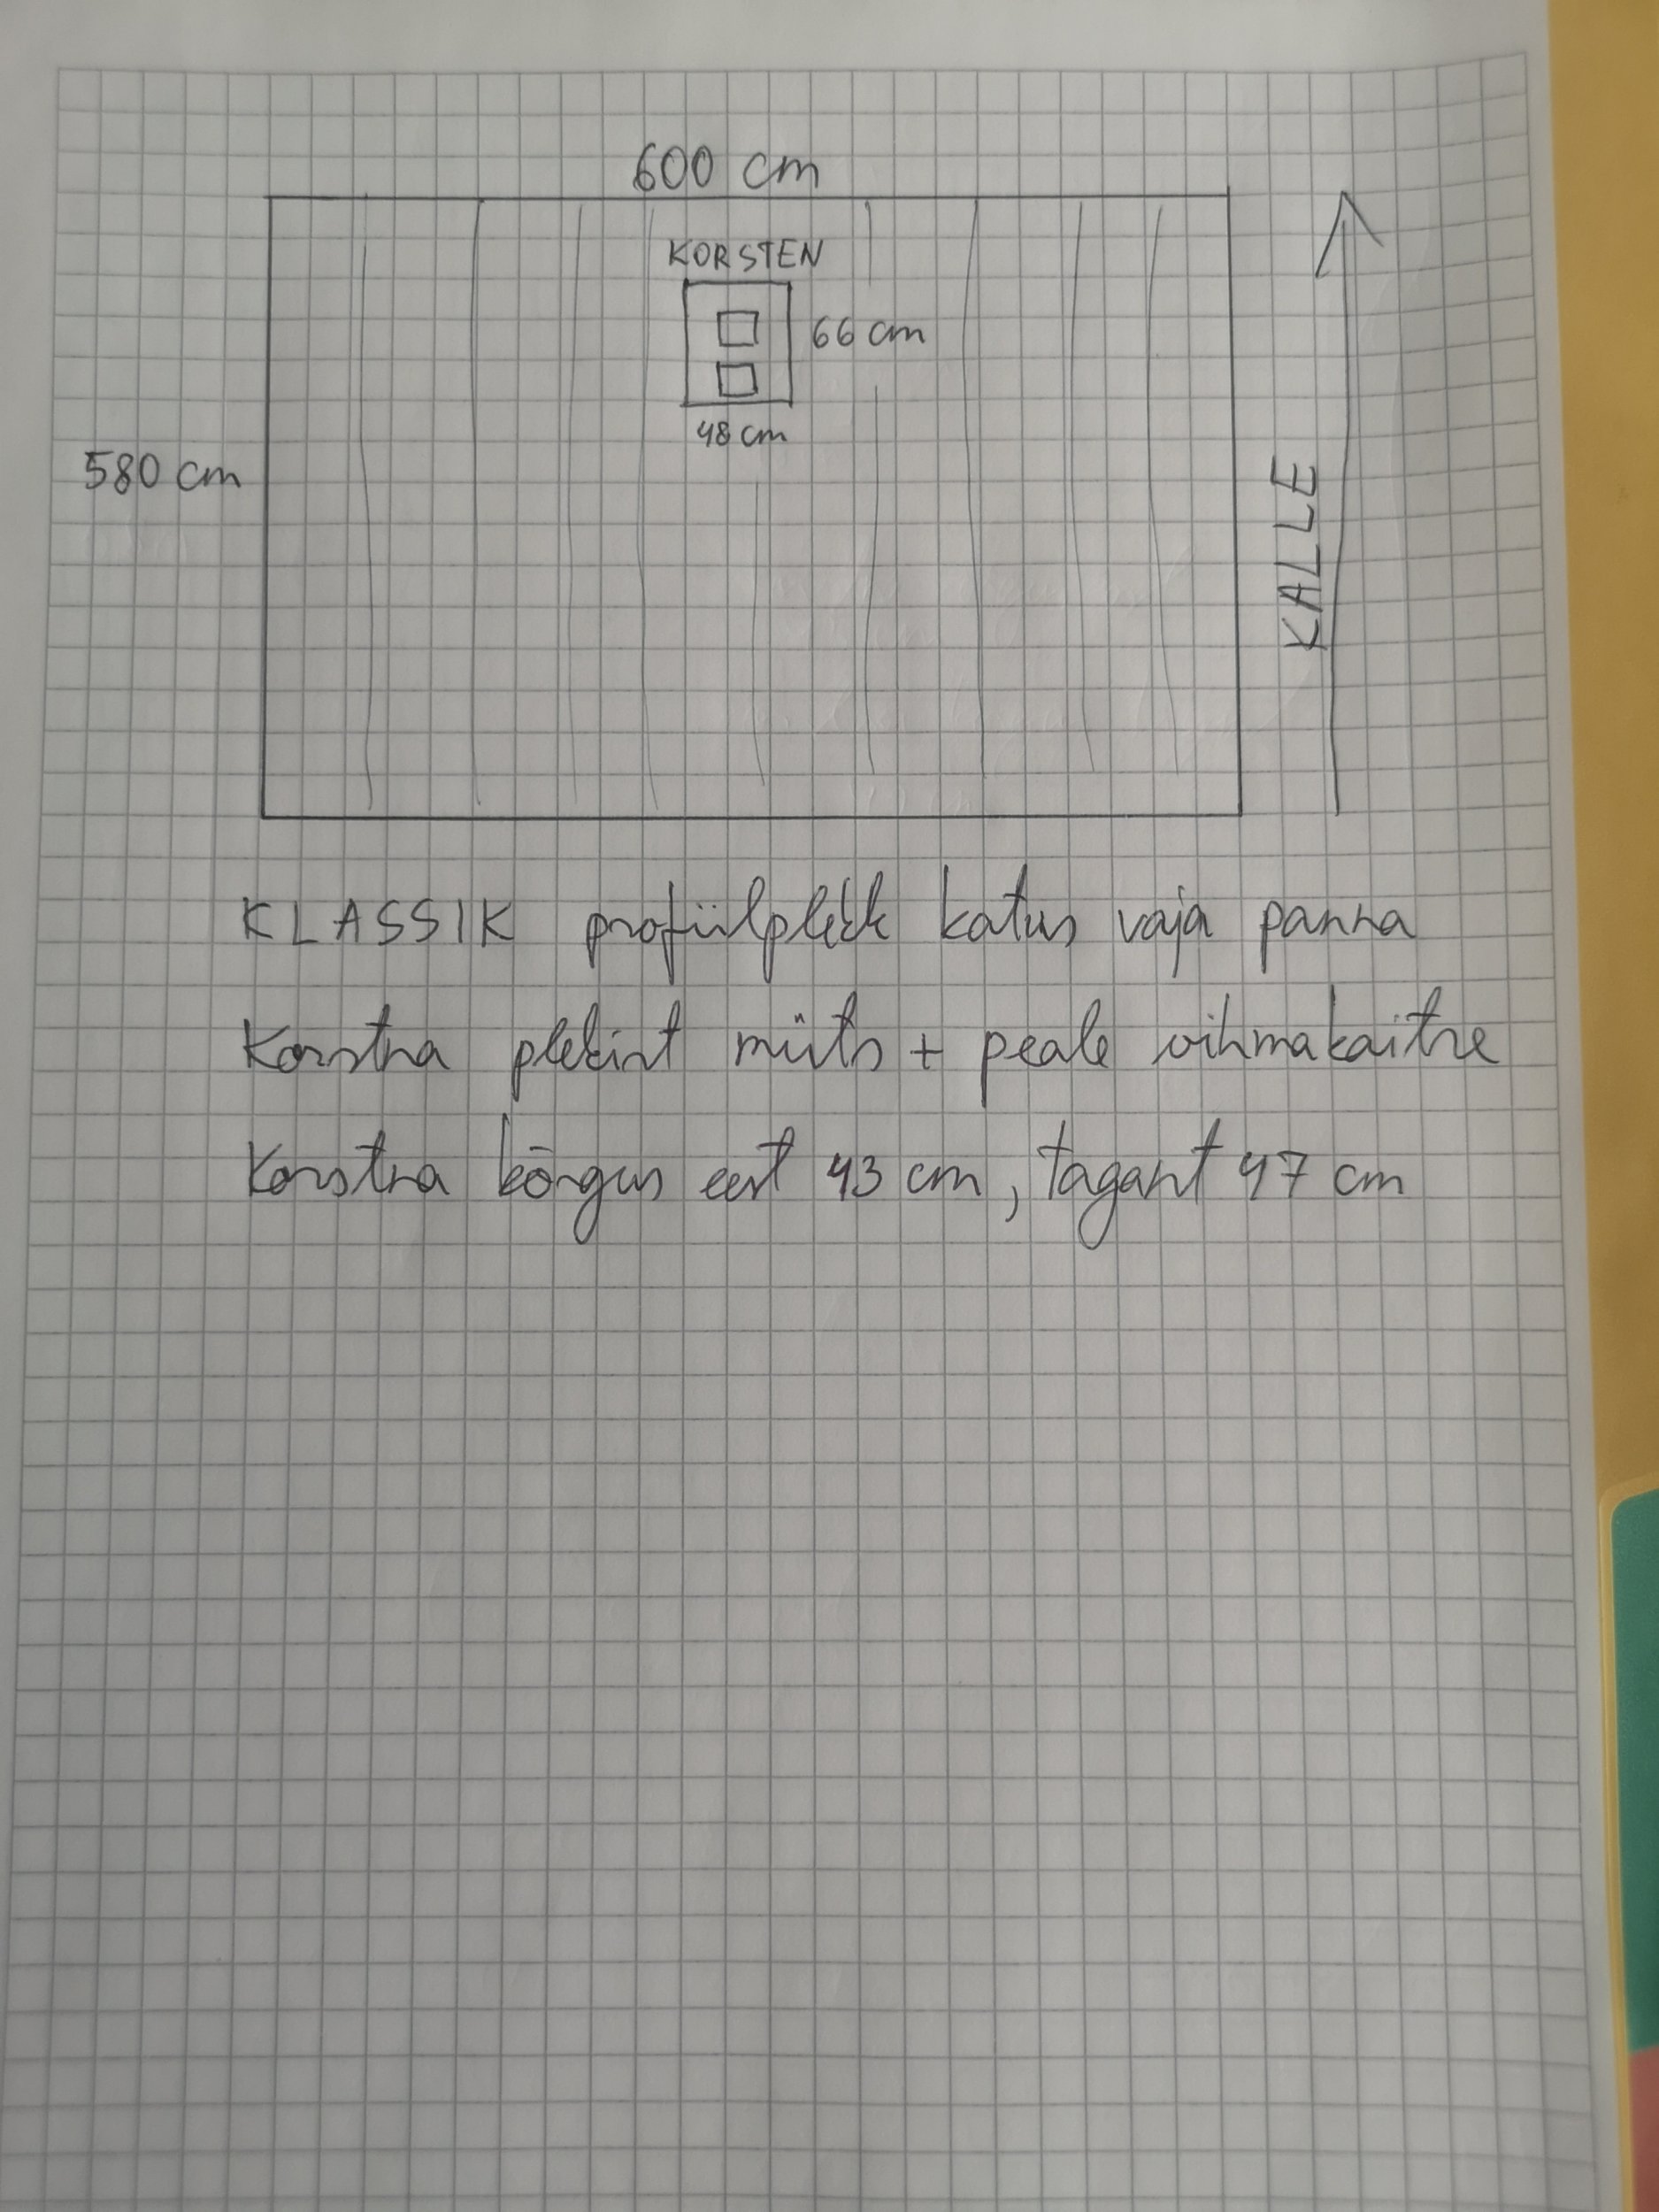 600 cm
KORSTEN
66 cm
48 cm
580 cm
KALLE
KLASSIK profiilplekk katus vaja panna
Korstna plekist müts + peale vihmakaitse
Korstna kõrgus eest 43 cm, tagant 47 cm